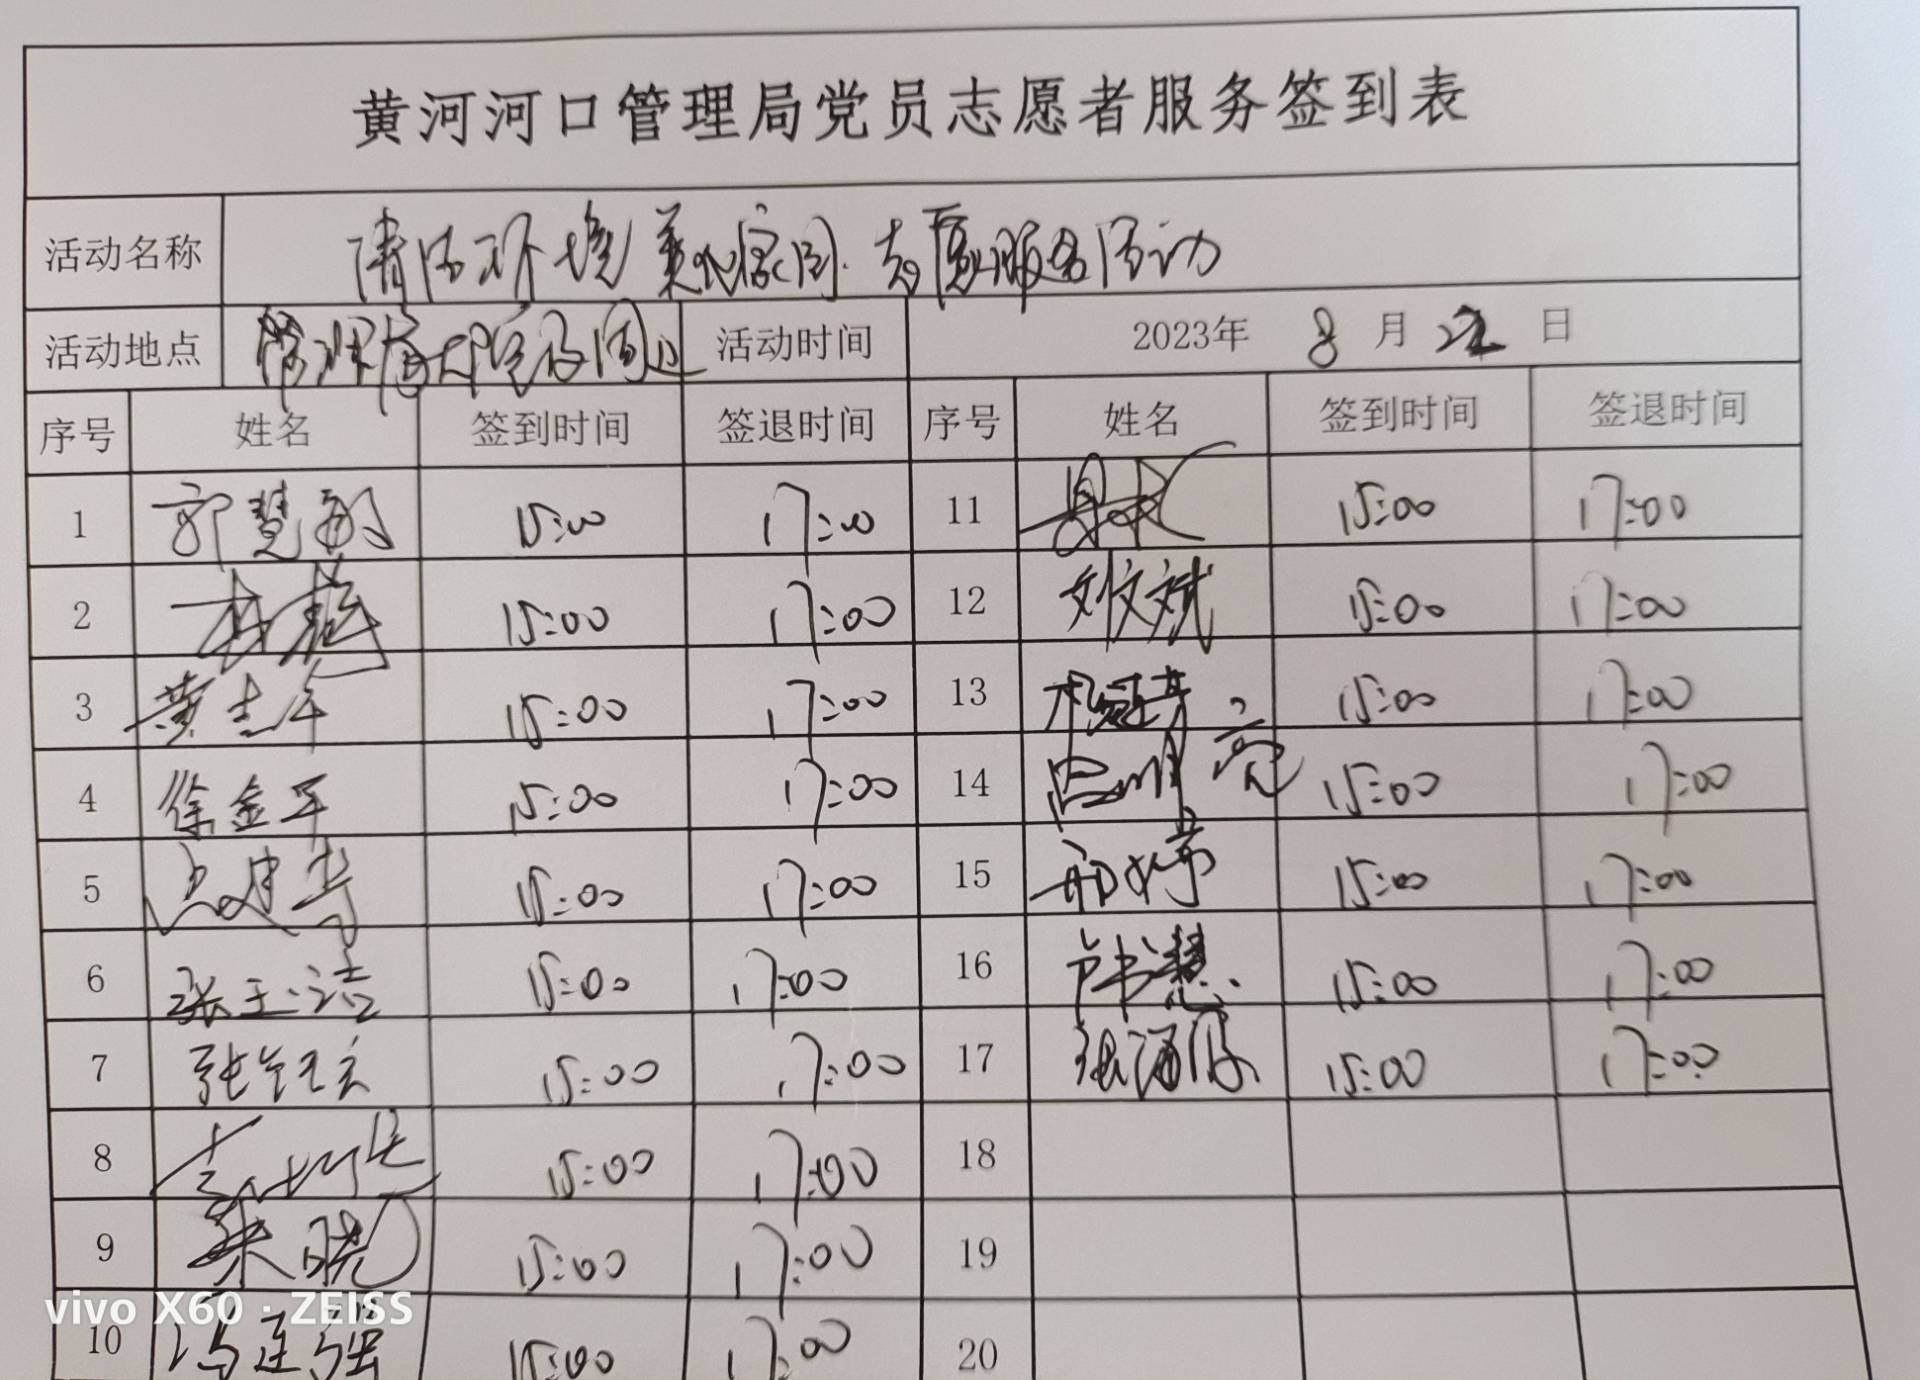 黄河河口管理局党员志愿者服务签到表
活动名称 清洁环境 美化家园 志愿服务活动
活动地点 管理局大院及周边 活动时间 2023年 8 月 22 日
序号 姓名 签到时间 签退时间 序号 姓名 签到时间 签退时间
1 郭慧敏 15:00 17:00 11 15:00 17:00
2 林燕 15:00 17:00 12 刘文斌 15:00 17:00
3 黄志军 15:00 17:00 13 杨冠军 15:00 17:00
4 徐金平 15:00 17:00 14 巴明亮 15:00 17:00
5 15:00 17:00 15 15:00 17:00
6 张玉洁 15:00 17:00 16 薛慧 15:00 17:00
7 15:00 17:00 17 15:00 17:00
8 15:00 17:00 18
9 15:00 17:00 19
10 冯连强 15:00 17:00 20
vivo X60 · ZEISS